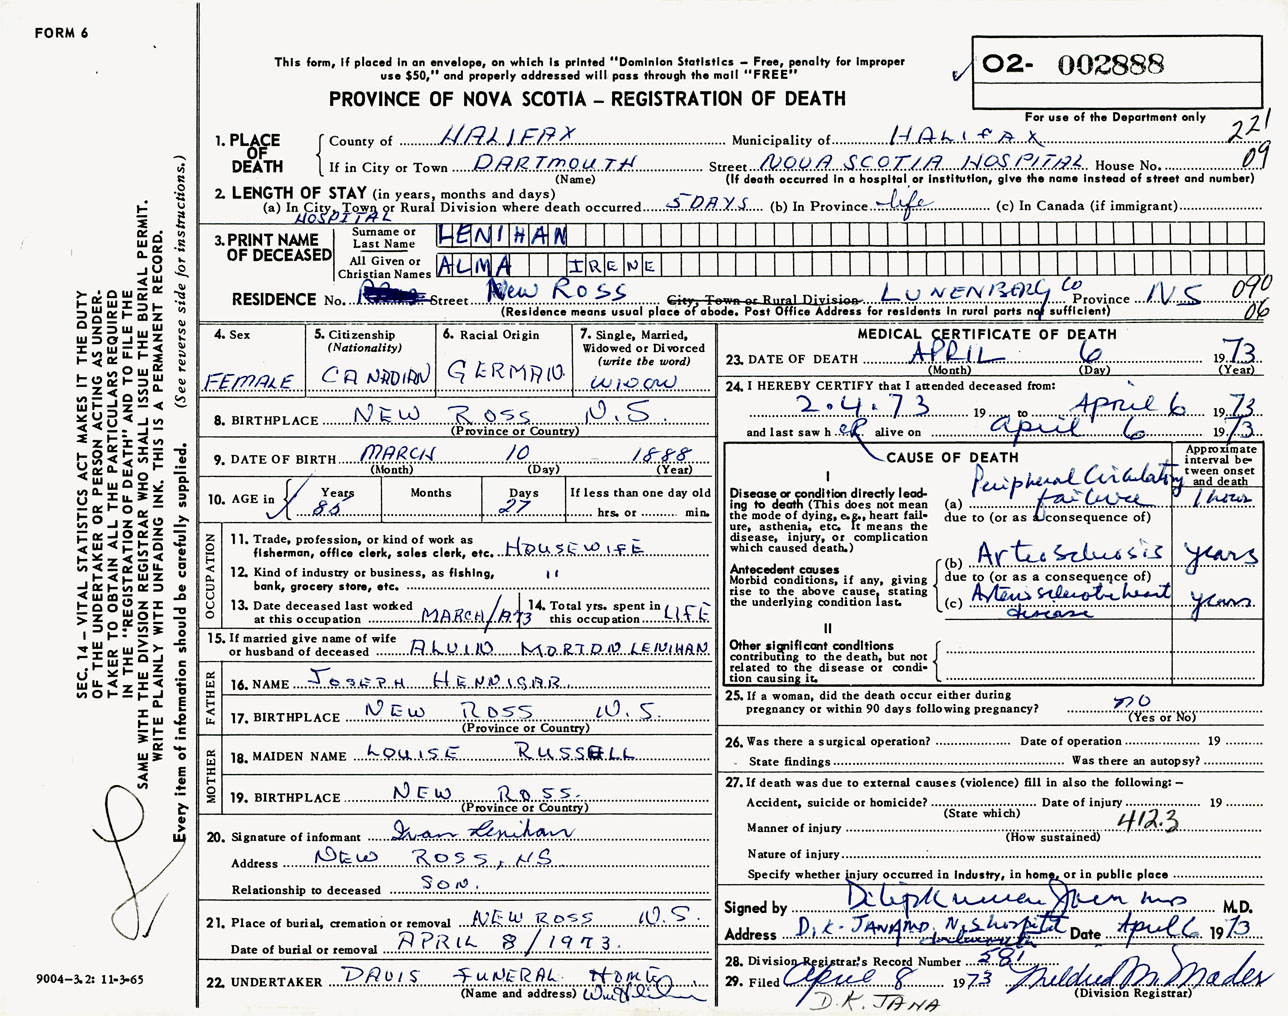 FORM 6
This form, if placed in an envelope, on which is printed "Dominion Statistics – Free, penalty for improper
use $50," and properly addressed will pass through the mail "FREE"
PROVINCE OF NOVA SCOTIA – REGISTRATION OF DEATH
O2- 002888
For use of the Department only
221
09
SEC. 14 – VITAL STATISTICS ACT MAKES IT THE DUTY
OF THE UNDERTAKER OR PERSON ACTING AS UNDER-
TAKER TO OBTAIN ALL THE PARTICULARS REQUIRED
IN THE "REGISTRATION OF DEATH" AND TO FILE THE
SAME WITH THE DIVISION REGISTRAR WHO SHALL ISSUE THE BURIAL PERMIT.
WRITE PLAINLY WITH UNFADING INK. THIS IS A PERMANENT RECORD.
Every item of information should be carefully supplied. (See reverse side for instructions.)
1. PLACE OF DEATH
County of HALIFAX Municipality of HALIFAX
If in City or Town DARTMOUTH Street NOVA SCOTIA HOSPITAL House No.
(Name) (If death occurred in a hospital or institution, give the name instead of street and number)
2. LENGTH OF STAY (in years, months and days)
(a) In City, Town or Rural Division where death occurred 5 DAYS (b) In Province life (c) In Canada (if immigrant)
HOSPITAL
3. PRINT NAME OF DECEASED
Surname or Last Name LENIHAN
All Given or Christian Names ALMA IRENE
RESIDENCE No. Street New ROSS City, Town or Rural Division LUNENBERG Co Province NS 090
06
(Residence means usual place of abode. Post Office Address for residents in rural parts not sufficient)
4. Sex FEMALE
5. Citizenship (Nationality) CANADIAN
6. Racial Origin GERMAN
7. Single, Married, Widowed or Divorced (write the word) WIDOW
8. BIRTHPLACE NEW ROSS N.S.
(Province or Country)
9. DATE OF BIRTH MARCH 10 1888
(Month) (Day) (Year)
10. AGE in Years 85 Months Days 27 If less than one day old hrs. or min.
OCCUPATION
11. Trade, profession, or kind of work as
fisherman, office clerk, sales clerk, etc. HOUSEWIFE
12. Kind of industry or business, as fishing,
bank, grocery store, etc. "
13. Date deceased last worked
at this occupation MARCH/1973
14. Total yrs. spent in
this occupation LIFE
15. If married give name of wife
or husband of deceased ALVIN MORTON LENIHAN
FATHER
16. NAME JOSEPH HENNIGAR
17. BIRTHPLACE NEW ROSS N.S.
(Province or Country)
MOTHER
18. MAIDEN NAME LOUISE RUSSELL
19. BIRTHPLACE NEW ROSS.
(Province or Country)
20. Signature of informant Ivan Lenihan
Address NEW ROSS, NS
Relationship to deceased SON.
21. Place of burial, cremation or removal NEW ROSS N.S.
Date of burial or removal APRIL 8/1973.
22. UNDERTAKER DAVIS FUNERAL HOME
(Name and address)
MEDICAL CERTIFICATE OF DEATH
23. DATE OF DEATH APRIL 6 1973
(Month) (Day) (Year)
24. I HEREBY CERTIFY that I attended deceased from:
2.4.73 19 to April 6 1973
and last saw h eR alive on April 6 1973
CAUSE OF DEATH
Approximate interval between onset and death
I
Disease or condition directly lead-
ing to death (This does not mean
the mode of dying, e.g., heart fail-
ure, asthenia, etc. It means the
disease, injury, or complication
which caused death.)
(a) Peripheral Circulatory failure 1 hour
due to (or as a consequence of)
Antecedent causes
Morbid conditions, if any, giving
rise to the above cause, stating
the underlying condition last.
(b) Arteriosclerosis years
due to (or as a consequence of)
(c) Arteriosclerotic heart disease years
II
Other significant conditions
contributing to the death, but not
related to the disease or condi-
tion causing it.
25. If a woman, did the death occur either during
pregnancy or within 90 days following pregnancy? no
(Yes or No)
26. Was there a surgical operation? Date of operation 19
State findings Was there an autopsy?
27. If death was due to external causes (violence) fill in also the following: –
Accident, suicide or homicide? Date of injury 19
(State which)
Manner of injury 412.3
(How sustained)
Nature of injury
Specify whether injury occurred in industry, in home, or in public place
Signed by M.D.
Address D.K. JANA MD. N.S. Hospital Date April 6 1973
28. Division Registrar's Record Number 581
29. Filed April 8 1973 Mildred M. Mader
(Division Registrar)
D.K. JANA
9004-3.2: 11-3-65